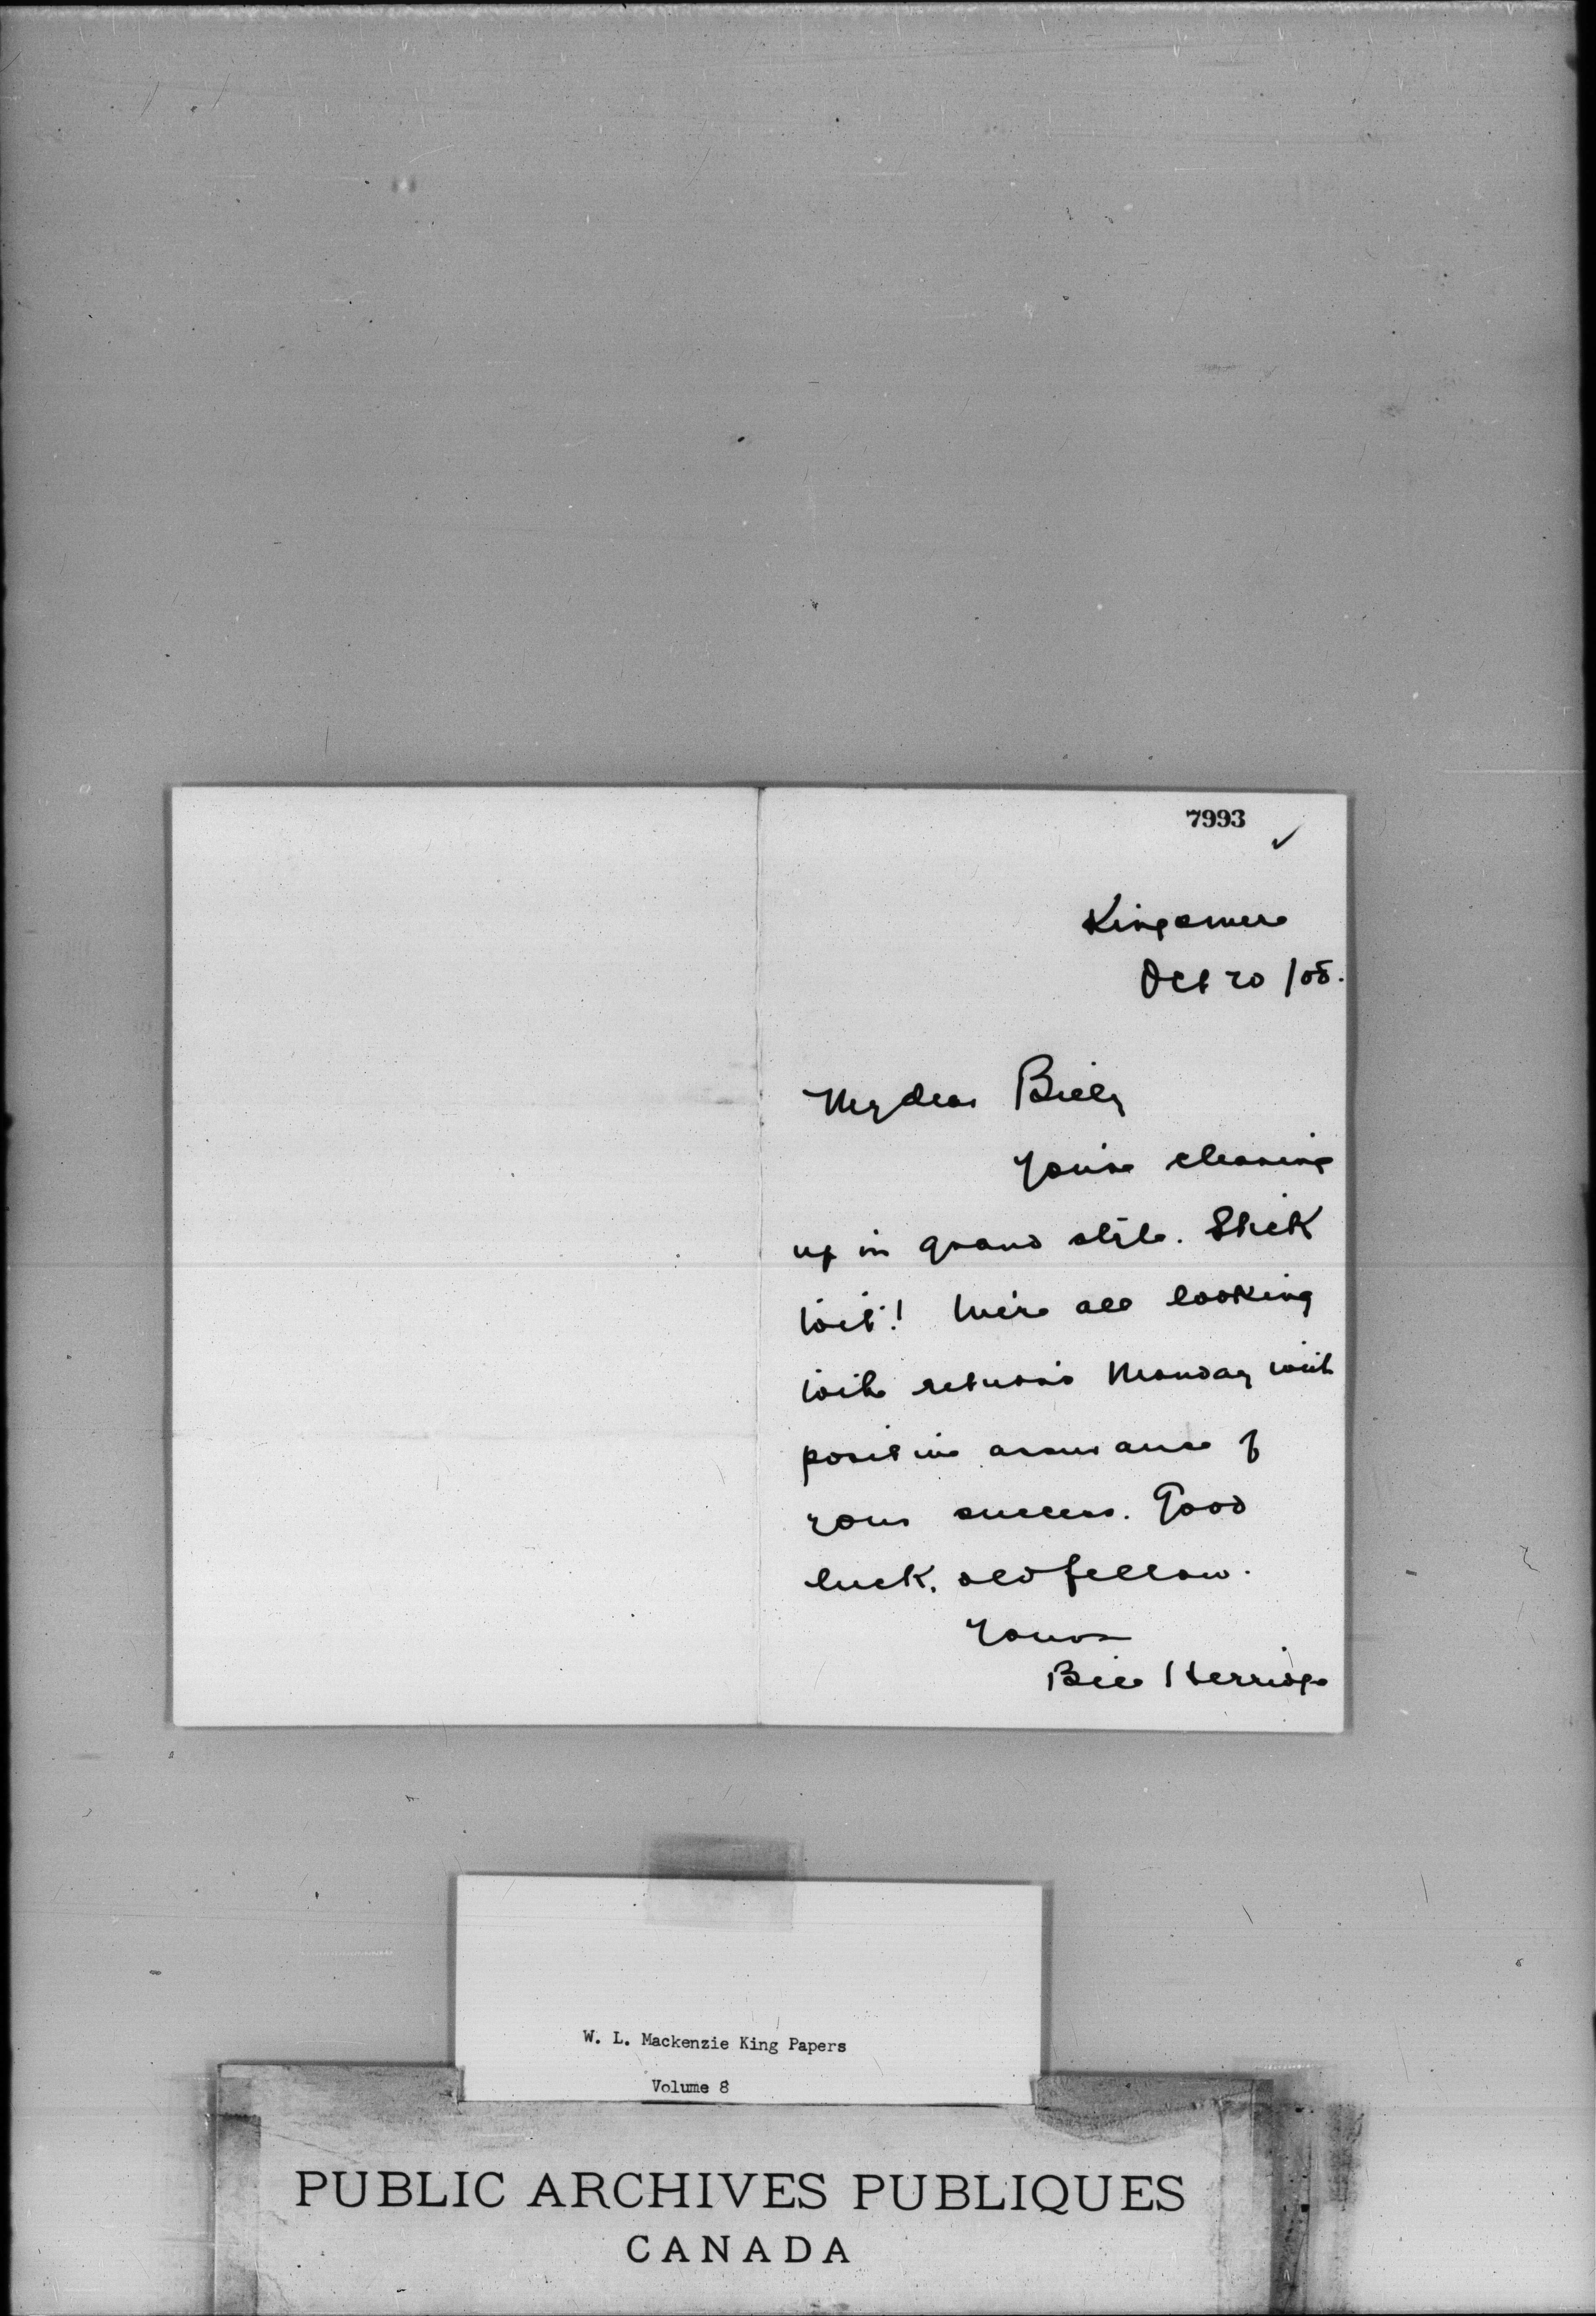 7993
Kingsmere
Oct 20 /08.
My dear Billy
You're cleaning
up in grand style. Stick
to it! We're all looking
to the returns Monday with
positive assurance of
your success. Good
luck, old fellow.
Yours
Bill Herridge
W. L. Mackenzie King Papers
Volume 8
PUBLIC ARCHIVES PUBLIQUES
CANADA